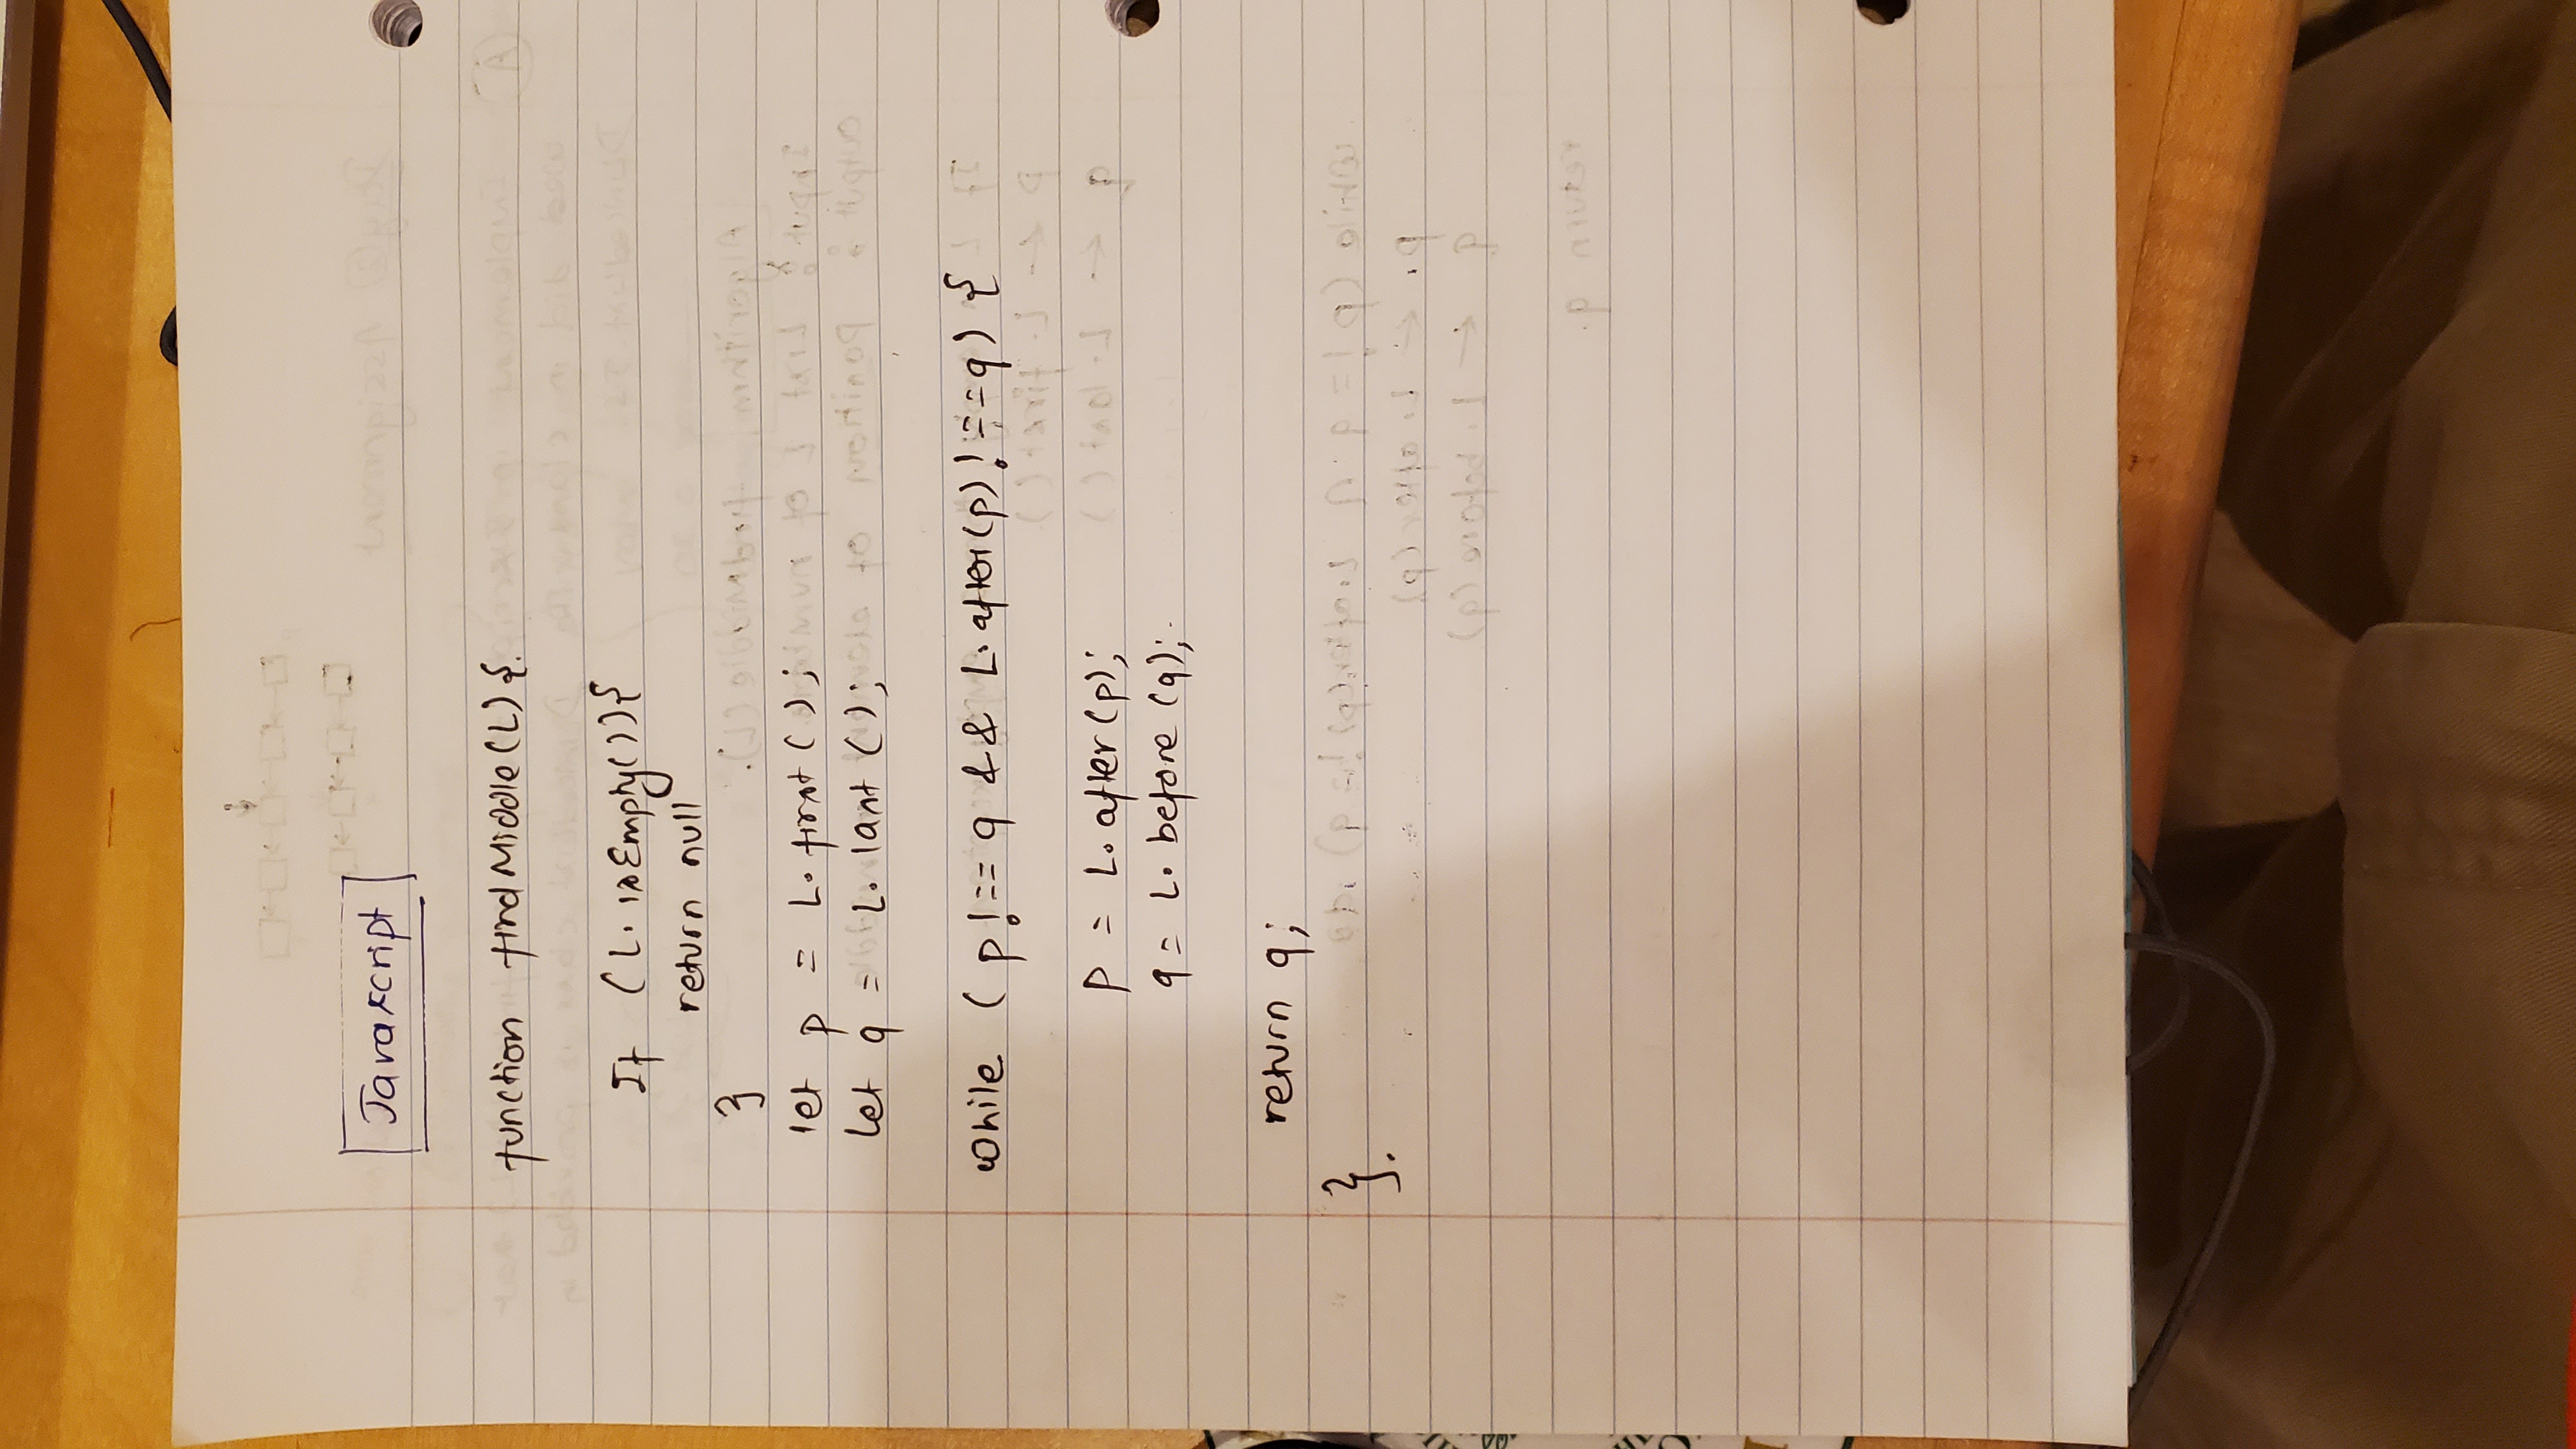 Javascript
function findMiddle(L){.
If (L.isEmpty()){
return null
}
let p = L.first();
Let q = L.last();
while (p!== q && L.after(p)!==q) {
p = L.after(p);
q= L.before(q);.
return q;
}.